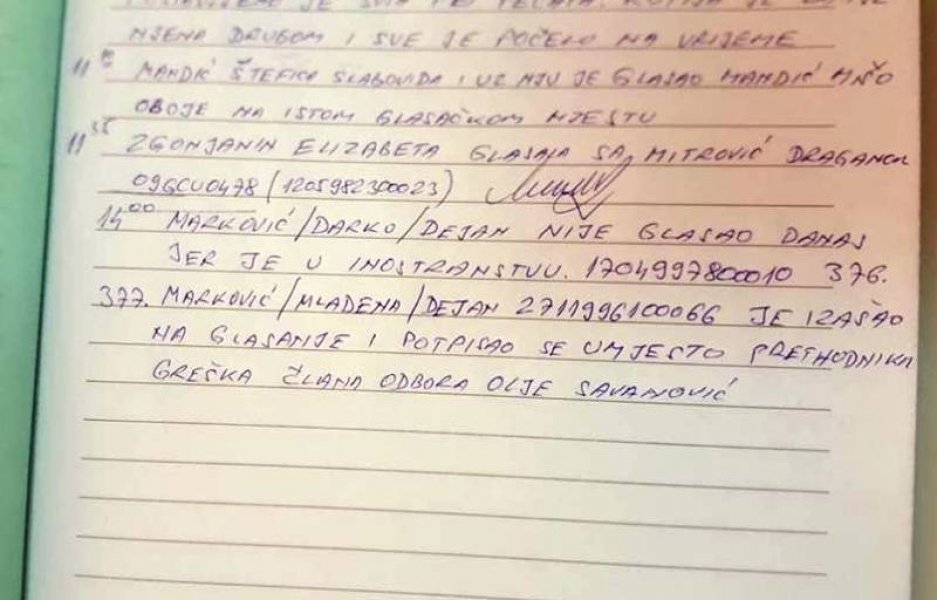 JE SVIH
NJENA DRUGOM I SVE JE POČELO NA VRIJEME
11 MANDIĆ ŠTEFICA SLABOVIDA I UZ NJU JE GLASAO MANDIĆ
OBOJE NA ISTOM GLASAČKOM MJESTU
11 55 ZGONJANIN ELIZABETA GLASALA SA MITROVIĆ DRAGANOM
09GCU0478 (1205982300023)
14 00 MARKOVIĆ/DARKO/DEJAN NIJE GLASAO DANAS
JER JE U INOSTRANSTVU. 1704997800010 376.
377. MARKOVIĆ/MLADENA/DEJAN 2711996100066 JE IZAŠAO
NA GLASANJE I POTPISAO SE UMJESTO PRETHODNIKA
GREŠKA ČLANA ODBORA OLJE SAVANOVIĆ